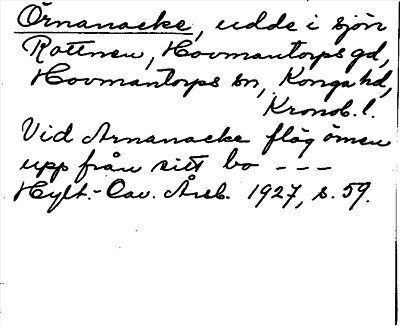 Örnanacke, udde i sjön
Rottnen, Hovmantorps gd,
Hovmantorps sn, Konga hd,
Kronob. l.
Vid Arnanacke flög örnen
upp från sitt bo - - -
Hylt.-Cav. Årsb. 1927, s. 59.